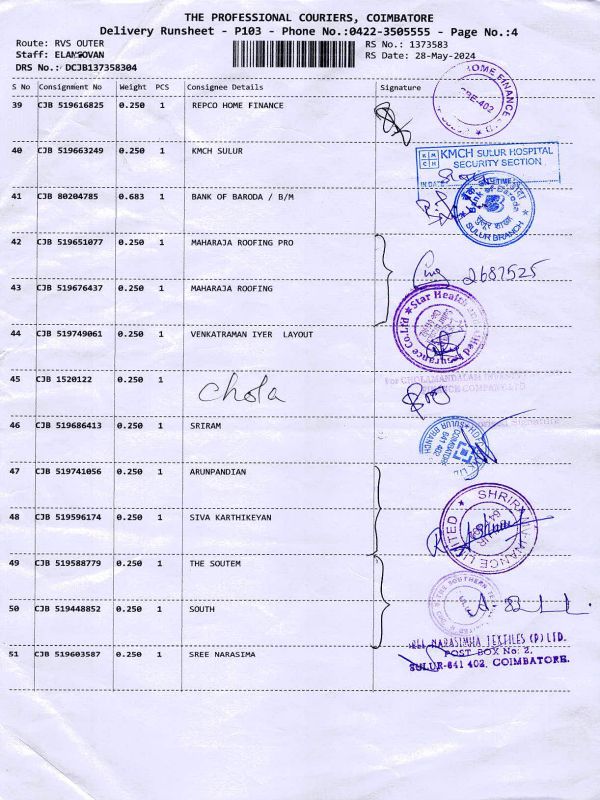 THE PROFESSIONAL COURIERS, COIMBATORE
Delivery Runsheet - P103 - Phone No.:0422-3505555 - Page No.:4
Route: RVS OUTER
RS No.: 1373583
Staff: ELANGOVAN
RS Date: 28-May-2024
DRS No.: DCJB137358304
S No Consignment No Weight PCS Consignee Details Signature
39 CJB 519616825 0.250 1 REPCO HOME FINANCE
HOME FINANCE
CBE-402
40 CJB 519663249 0.250 1 KMCH SULUR
KMCH SULUR HOSPITAL
SECURITY SECTION
IN DATE TIME
41 CJB 80204785 0.683 1 BANK OF BARODA / B/M
Bank of Baroda
सुलूर शाखा
SULUR BRANCH
42 CJB 519651077 0.250 1 MAHARAJA ROOFING PRO
2687525
43 CJB 519676437 0.250 1 MAHARAJA ROOFING
Star Health
Insurance Co.Ltd
44 CJB 519749061 0.250 1 VENKATRAMAN IYER LAYOUT
45 CJB 1520122 0.250 1 Chola
For CHOLAMANDALAM INVESTMENT
FINANCE COMPANY LTD
Authorised Signature
46 CJB 519686413 0.250 1 SRIRAM
COIMBATORE
641 402
SULUR BRANCH
47 CJB 519741056 0.250 1 ARUNPANDIAN
SHRIRAM FINANCE LIMITED
48 CJB 519596174 0.250 1 SIVA KARTHIKEYAN
49 CJB 519588779 0.250 1 THE SOUTEM
THE SOUTHERN
50 CJB 519448852 0.250 1 SOUTH
51 CJB 519603587 0.250 1 SREE NARASIMA
SREE NARASIMHA TEXTILES (P) LTD.
POST BOX No: 2,
SULUR-641 402, COIMBATORE.